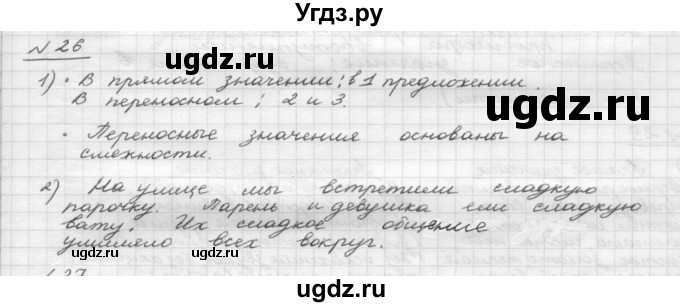 Угдз.ру
№ 26
ugdz.ru ugdz.ru
1) • В прямом значении: в 1 предложении.
В переносном: 2 и 3.
ugdz.ru ugdz.ru
• Переносные значения основаны на
смежности.
ugdz.ru ugdz.ru
2) На улице мы встретили сладкую
парочку. Парень и девушка ели сладкую
вату. Их сладкое общение
умиляло всех вокруг.
ugdz.ru ugdz.ru
27
Угдз.ру